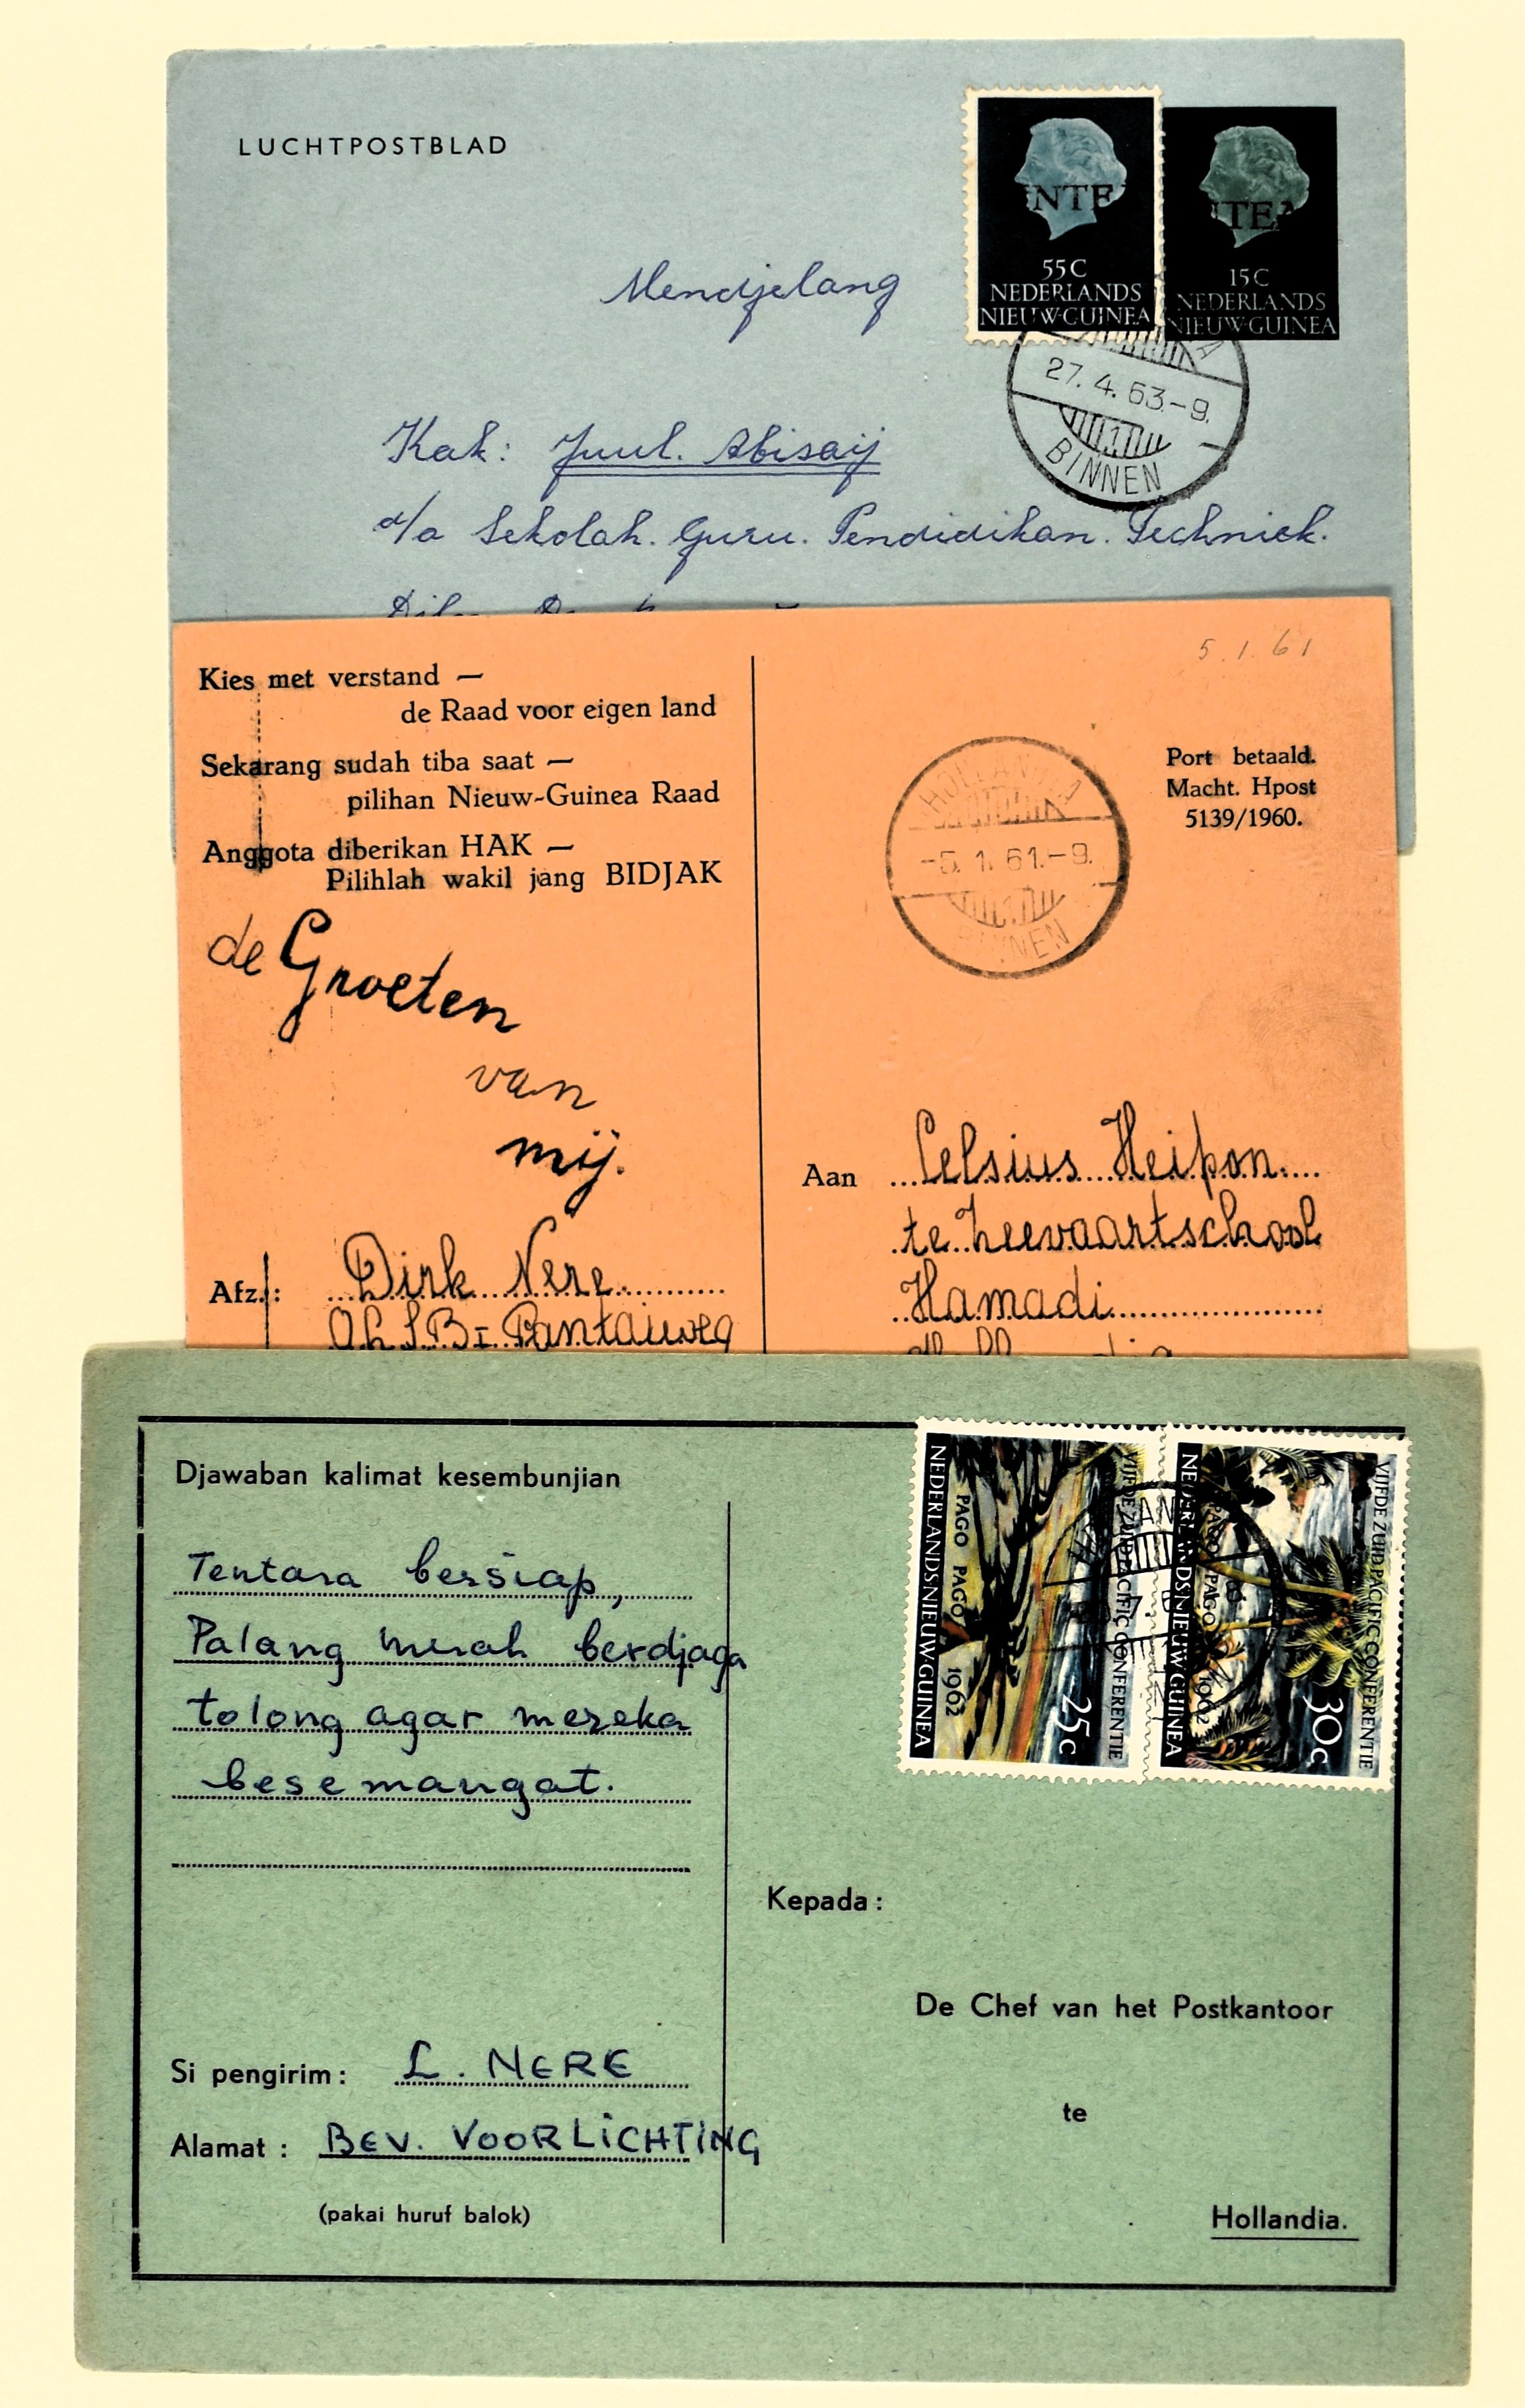 LUCHTPOSTBLAD
UNTEA
55C
NEDERLANDS
NIEUW-GUINEA
NTEA
15C
NEDERLANDS
NIEUW-GUINEA
27.4.63.-9.
1
BINNEN
Mendjelang
Kak: Juul. Abisaij
d/a Sekolah. Guru. Pendidikan. Techniek.
5.1.61
Kies met verstand —
de Raad voor eigen land
Sekarang sudah tiba saat —
pilihan Nieuw-Guinea Raad
Anggota diberikan HAK —
Pilihlah wakil jang BIDJAK
Port betaald.
Macht. Hpost
5139/1960.
HOLLANDIA
-5.1.61.-9.
1
BINNEN
de Groeten
van
mij.
Aan Celsius Heipon
te Zeevaartschool
Hamadi
Afz.: Dirk Nere
O.L.S.B-I Pantaiweg
Djawaban kalimat kesembunjian
Tentara bersiap,
Palang merah berdjaga
tolong agar mereka
besemangat.
VIJFDE ZUID PACIFIC CONFERENTIE
25c
PAGO PAGO 1962
NEDERLANDS NIEUW GUINEA
VIJFDE ZUID PACIFIC CONFERENTIE
30c
PAGO PAGO 1962
NEDERLANDS NIEUW GUINEA
Kepada:
De Chef van het Postkantoor
te
Hollandia.
Si pengirim: L. NERE
Alamat: BEV. VOORLICHTING
(pakai huruf balok)